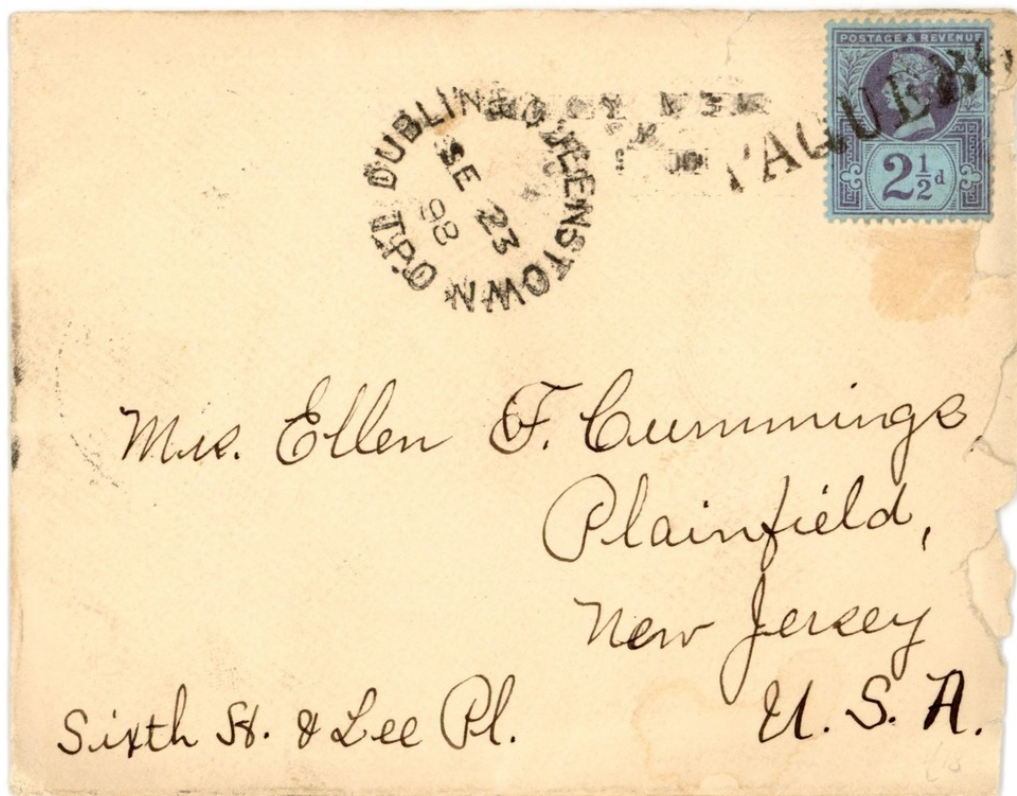 POSTAGE & REVENUE
PAQUEBO
2½d
DUBLIN & QUEENSTOWN T.P.O.
SE 23
98
Mrs. Ellen F. Cummings
Plainfield,
New Jersey
U. S. A.
Sixth St. & Lee Pl.